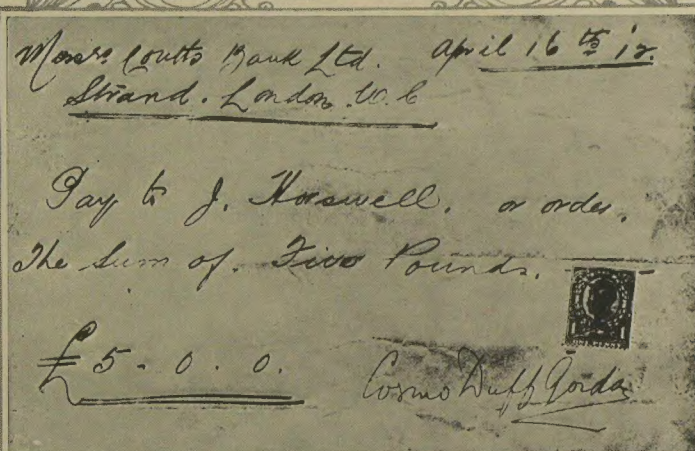 Messrs Coutts Bank Ltd. April 16th '12.
Strand. London. W.C
Pay to J. Horswell. or order.
The Sum of. Five Pounds.
£5 - 0 . 0.
Cosmo Duff Gordon